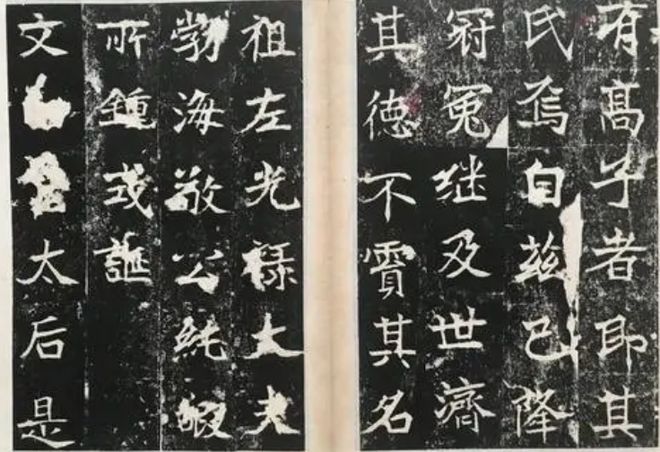 有髙子者即其
氏焉自兹已降
冠冕继及世濟
其徳不霣其名
祖左光禄大夫
勃海敬公純嘏
所鍾式誕
文太后是